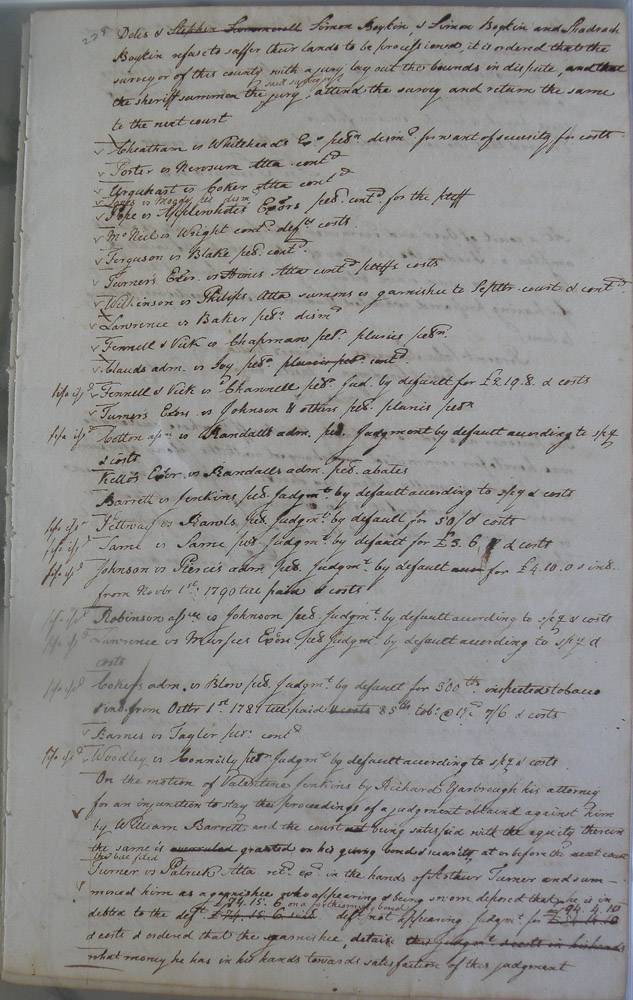 Simon Boykin, & Simon Boykin and Shadrach
Boykin refuse to suffer their lands to be processioned, it is ordered that the
surveyor of this county with a jury lay out the bounds in dispute, and that
the sheriff summon the jury, attend the survey and return the same
to the next court
Cheatham vs Whitehead's petn dismd for want of security for costs
Porter vs Newsum Atta contd
Urquhart vs Coker Atta contd
Jones vs Moody pet dism
Pope vs Applewhite's Exors petn contd for the pltff
McNeil vs Wright contd defts costs
Ferguson vs Blake petn contd
Turner's Exor vs Atta contd pltffs costs
Wilkinson vs Philips Atta sumons vs garnishee to Septr court & contd
Lawrence vs Baker petn dismd
Fennell & Vick vs Chapman petn pluries petn
Clauds adm. vs Joy petn contd
Fennell & Vick vs Channell petn Jud. by default for £2.19.8. & costs
Turner's Exors vs Johnson & others petn pluries petn
Cotton assee vs Randall's adm. petn Judgment by default according to spcy
& costs
Kello's Exor vs Randall's adm. petn abates
Barrett vs Jenkins petn Judgmt by default according to spcy & costs
Pettway vs Rawls petn Judgmt by default for 50/ & costs
Same vs Same petn Judgmt by default for £3.6 & costs
Johnson vs Pierce's adm petn Judgmt by default for £4.10.0 & int.
from Novbr 1st 1790 till paid & costs
Robinson assee vs Johnson petn Judgmt by default according to spcy & costs
Lawrence vs Exors petn Judgmt by default according to spcy &
costs
Coker's adm. vs Blow petn Judgmt by default for 500 lbs inspected tobacco
& int from Octbr 1st 1789 till paid 85 lbs tobo @ 7/6 & costs
Barnes vs Tayler petn contd
Woodley vs Connilly petn Judgmt by default according to spcy & costs
On the motion of Valentine Jenkins by Richard Yarbrough his attorney
for an injunction to stay the proceedings of a judgment obtained against him
by William Barrett and the court being satisfied with the equity thereon
the same is granted on his giving bond & security at or before the next court
this bill filed
Turner vs Patrick Atta in the hands of Arthur Turner and sum-
moned him as a garnishee who appearing & being sworn deposed that he is in
£74.15.6 on a forthcoming bond
debted to the deft deft not appearing. Judgmt for £94.4.10
& costs & ordered that the garnishee, detain
what money he has in his hands towards satisfaction of this judgment